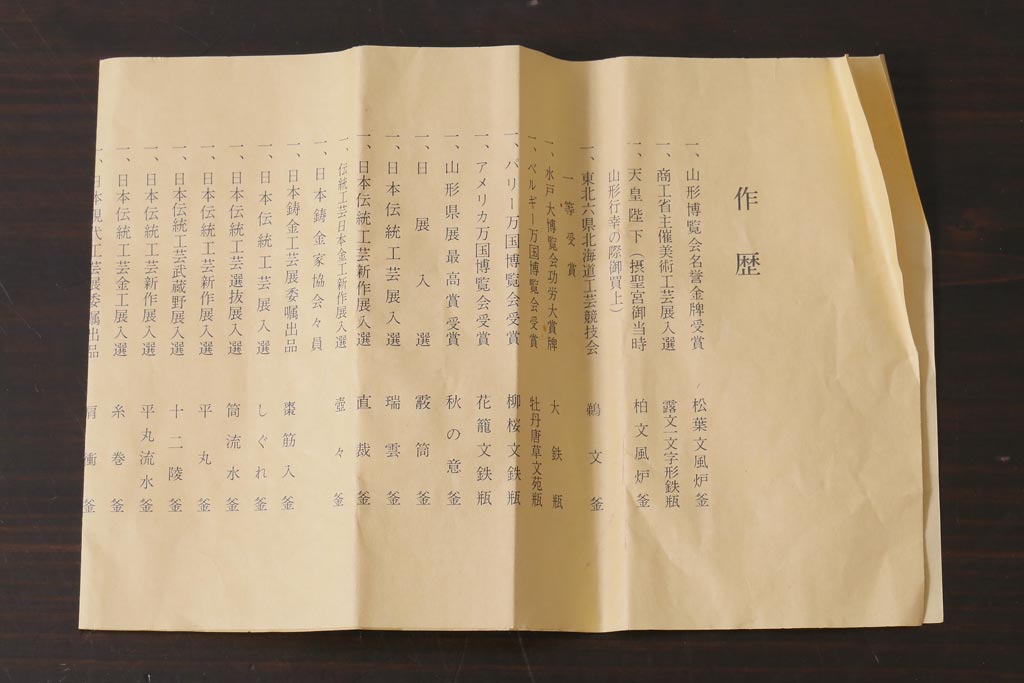 作歴
一、山形博覧会名誉金牌受賞 松葉文風炉釜
一、商工省主催美術工芸展入選 露文一文字形鉄瓶
一、天皇陛下（摂聖宮御当時 柏文風炉釜
山形行幸の際御買上）
一、東北六県北海道工芸競技会 鵜文釜
一等受賞
一、水戸大博覧会功労大賞牌 大鉄瓶
一、ベルギー万国博覧会受賞 牡丹唐草文苑瓶
一、パリー万国博覧会受賞 柳桜文鉄瓶
一、アメリカ万国博覧会受賞 花籠文鉄瓶
一、山形県展最高賞受賞 秋の意釜
一、日展入選 霰筒釜
一、日本伝統工芸展入選 瑞雲釜
一、日本伝統工芸新作展入選 直裁釜
一、伝統工芸日本金工新作展入選 壺々釜
一、日本鋳金家協会々員
一、日本鋳金工芸展委嘱出品 棗筋入釜
一、日本伝統工芸展入選 しぐれ釜
一、日本伝統工芸選抜展入選 筒流水釜
一、日本伝統工芸新作展入選 平丸釜
一、日本伝統工芸武蔵野展入選 十二陵釜
一、日本伝統工芸新作展入選 平丸流水釜
一、日本伝統工芸金工展入選 糸巻釜
一、日本現代工芸展委嘱出品 肩衝釜